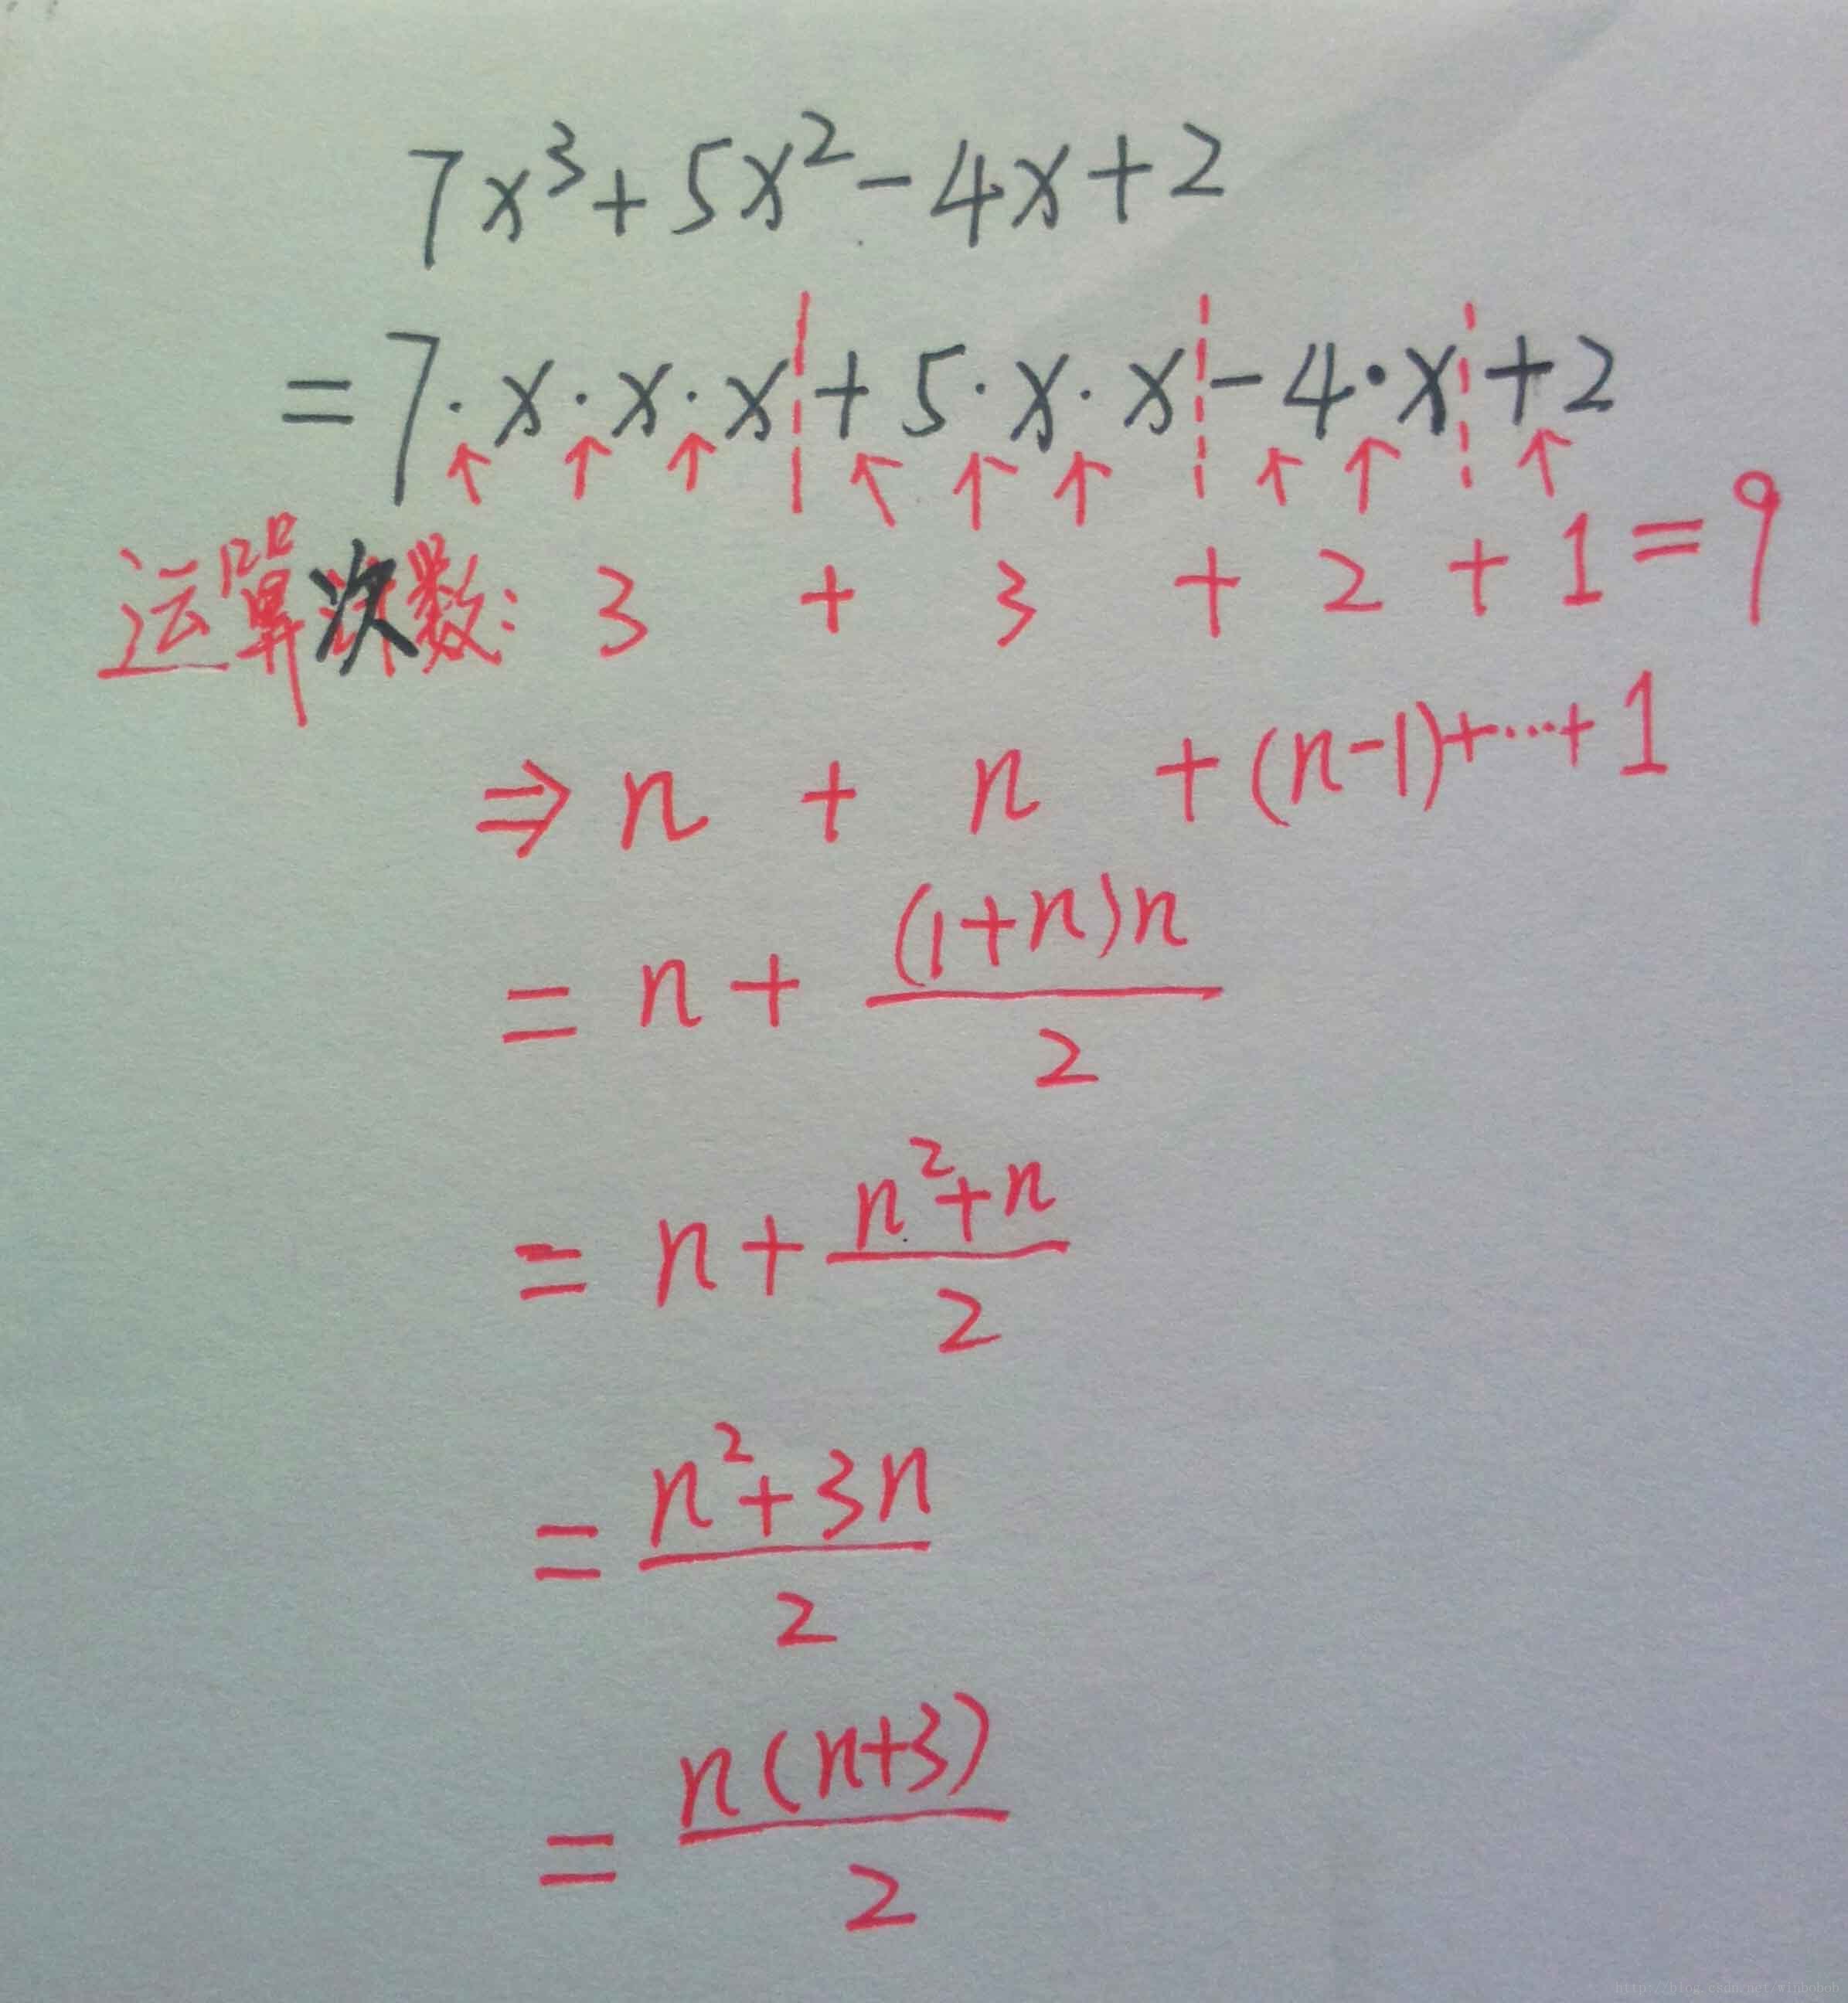 7x³+5x²-4x+2
=7·x·x·x+5·x·x-4·x+2
运算次数: 3 + 3 + 2 + 1 = 9
⇒ n + n + (n-1)+···+1
= n + (1+n)n/2
= n + n²+n/2
= n²+3n/2
= n(n+3)/2